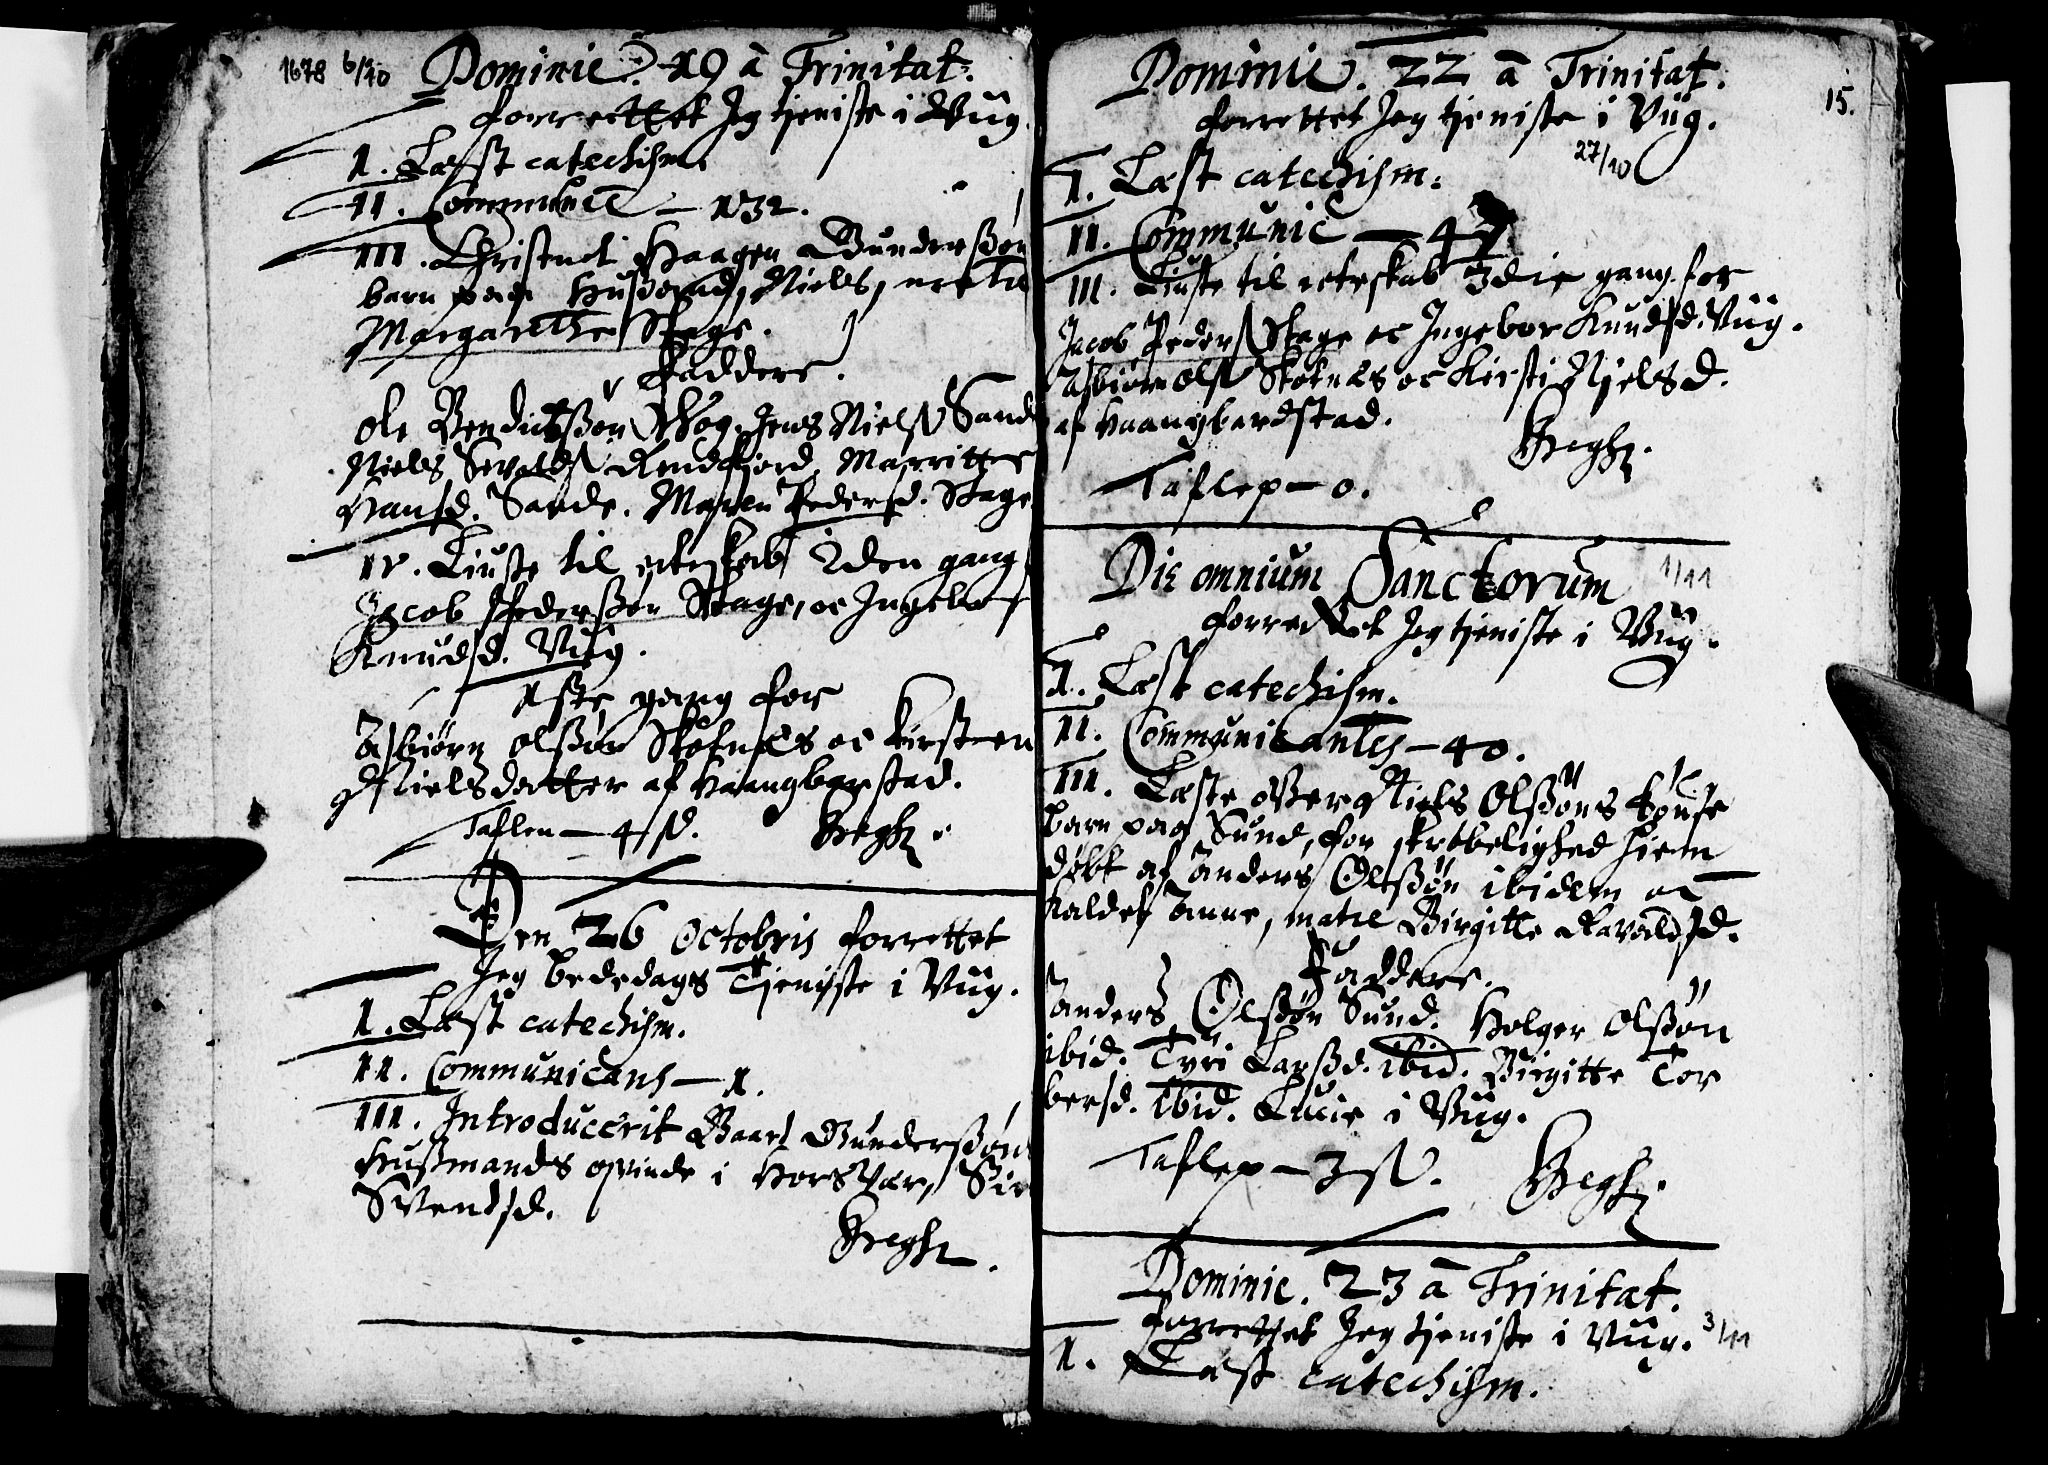 1678 6/10 Dominic. 19 à Trinitat.
forrettet Jeg tjeniste i Vug.
I. Læst catechism.
II. Communic — 132.
III. Christnet Haagen Gunderßøn
barn paa Hußbye, Niels, matre
Margarethe Stage.
Faddere.
Ole Bendictßøn Jens Nielß Sand
Niels Sevaldß Rendfjord, Marritte
Hansd. Sande. Maren Pedersd. Stage
IV. Liuste til ecteskab 2den gang
Jacob Pederßøn Stage, oc Ingebor
Knudsd. Vug.
1ste gang for
Asbiørn Olßøn Skotnæs oc Kirsten
Nielsdatter af Haangbarstad.
Taflen — 4 sk. Bregh.
Den 26 Octobris forrettet
Jeg bededags Tjeniste i Vug.
I. Læst catechism.
II. Communicans — 1.
III. Introducerit Baard Gunderßøns
Hußmands qvinde i Horsvær, Siri
Svendsd.
Bregh.
Dominic. 22 à Trinitat. 15.
forrettet Jeg tjeniste i Vug.
27/10
I. Læst catechism:
II. Communic — 4
III. Liuste til ecteskab 3die gang for
Jacob Pederß Stage oc Ingebor Knudsd. Vug.
Asbiørn Olß Skotnæs oc Kirsti Nielsd.
af Haangbardstad.
Bregh.
Taflen — 0.
Die omnium Sanctorum 1/11
forrettet Jeg tjeniste i Vug.
I. Læst catechism.
II. Communicantes — 40.
III. Læste offuer Niels Olßøns
barn paa Sund, for skrøbelighed hiem
døbt af Anders Olßøn ibidem oc
kaldet Anne, matre Birgitte Ravaldsd.
Faddere.
Anders Olßøn Sund. Holger Olßøn
ibid. Tyri Larßd. ibid. Birgitte Tor
bersd. ibid. Lucie i Vug.
Taflen — 3 sk. Bregh.
Dominic. 23 à Trinitat.
forrettet Jeg tjeniste i Vug. 3/11
I. Læst catechism.